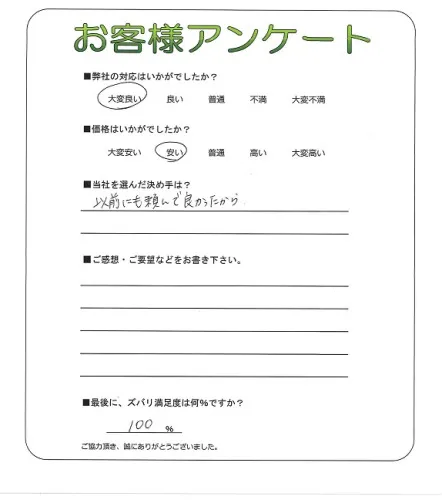 お客様アンケート
■弊社の対応はいかがでしたか？
大変良い 良い 普通 不満 大変不満
■価格はいかがでしたか？
大変安い 安い 普通 高い 大変高い
■当社を選んだ決め手は？
以前にも頼んで良かったから
■ご感想・ご要望などをお書き下さい。
■最後に、ズバリ満足度は何％ですか？
100 ％
ご協力頂き、誠にありがとうございました。